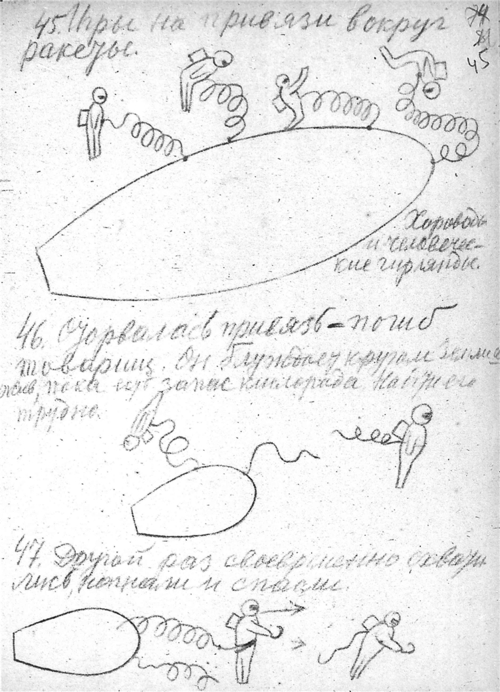 45. Игры на привязи вокруг
ракеты.
45
Хороводы
и человечес-
кие гирлянды.
46. Оторвалась привязь – погиб
товарищ. Он блуждает кругом Земли
пока запас кислорода. Найти его
трудно.
47. Другой раз своевременно схвати-
лись, догнали и спасли.